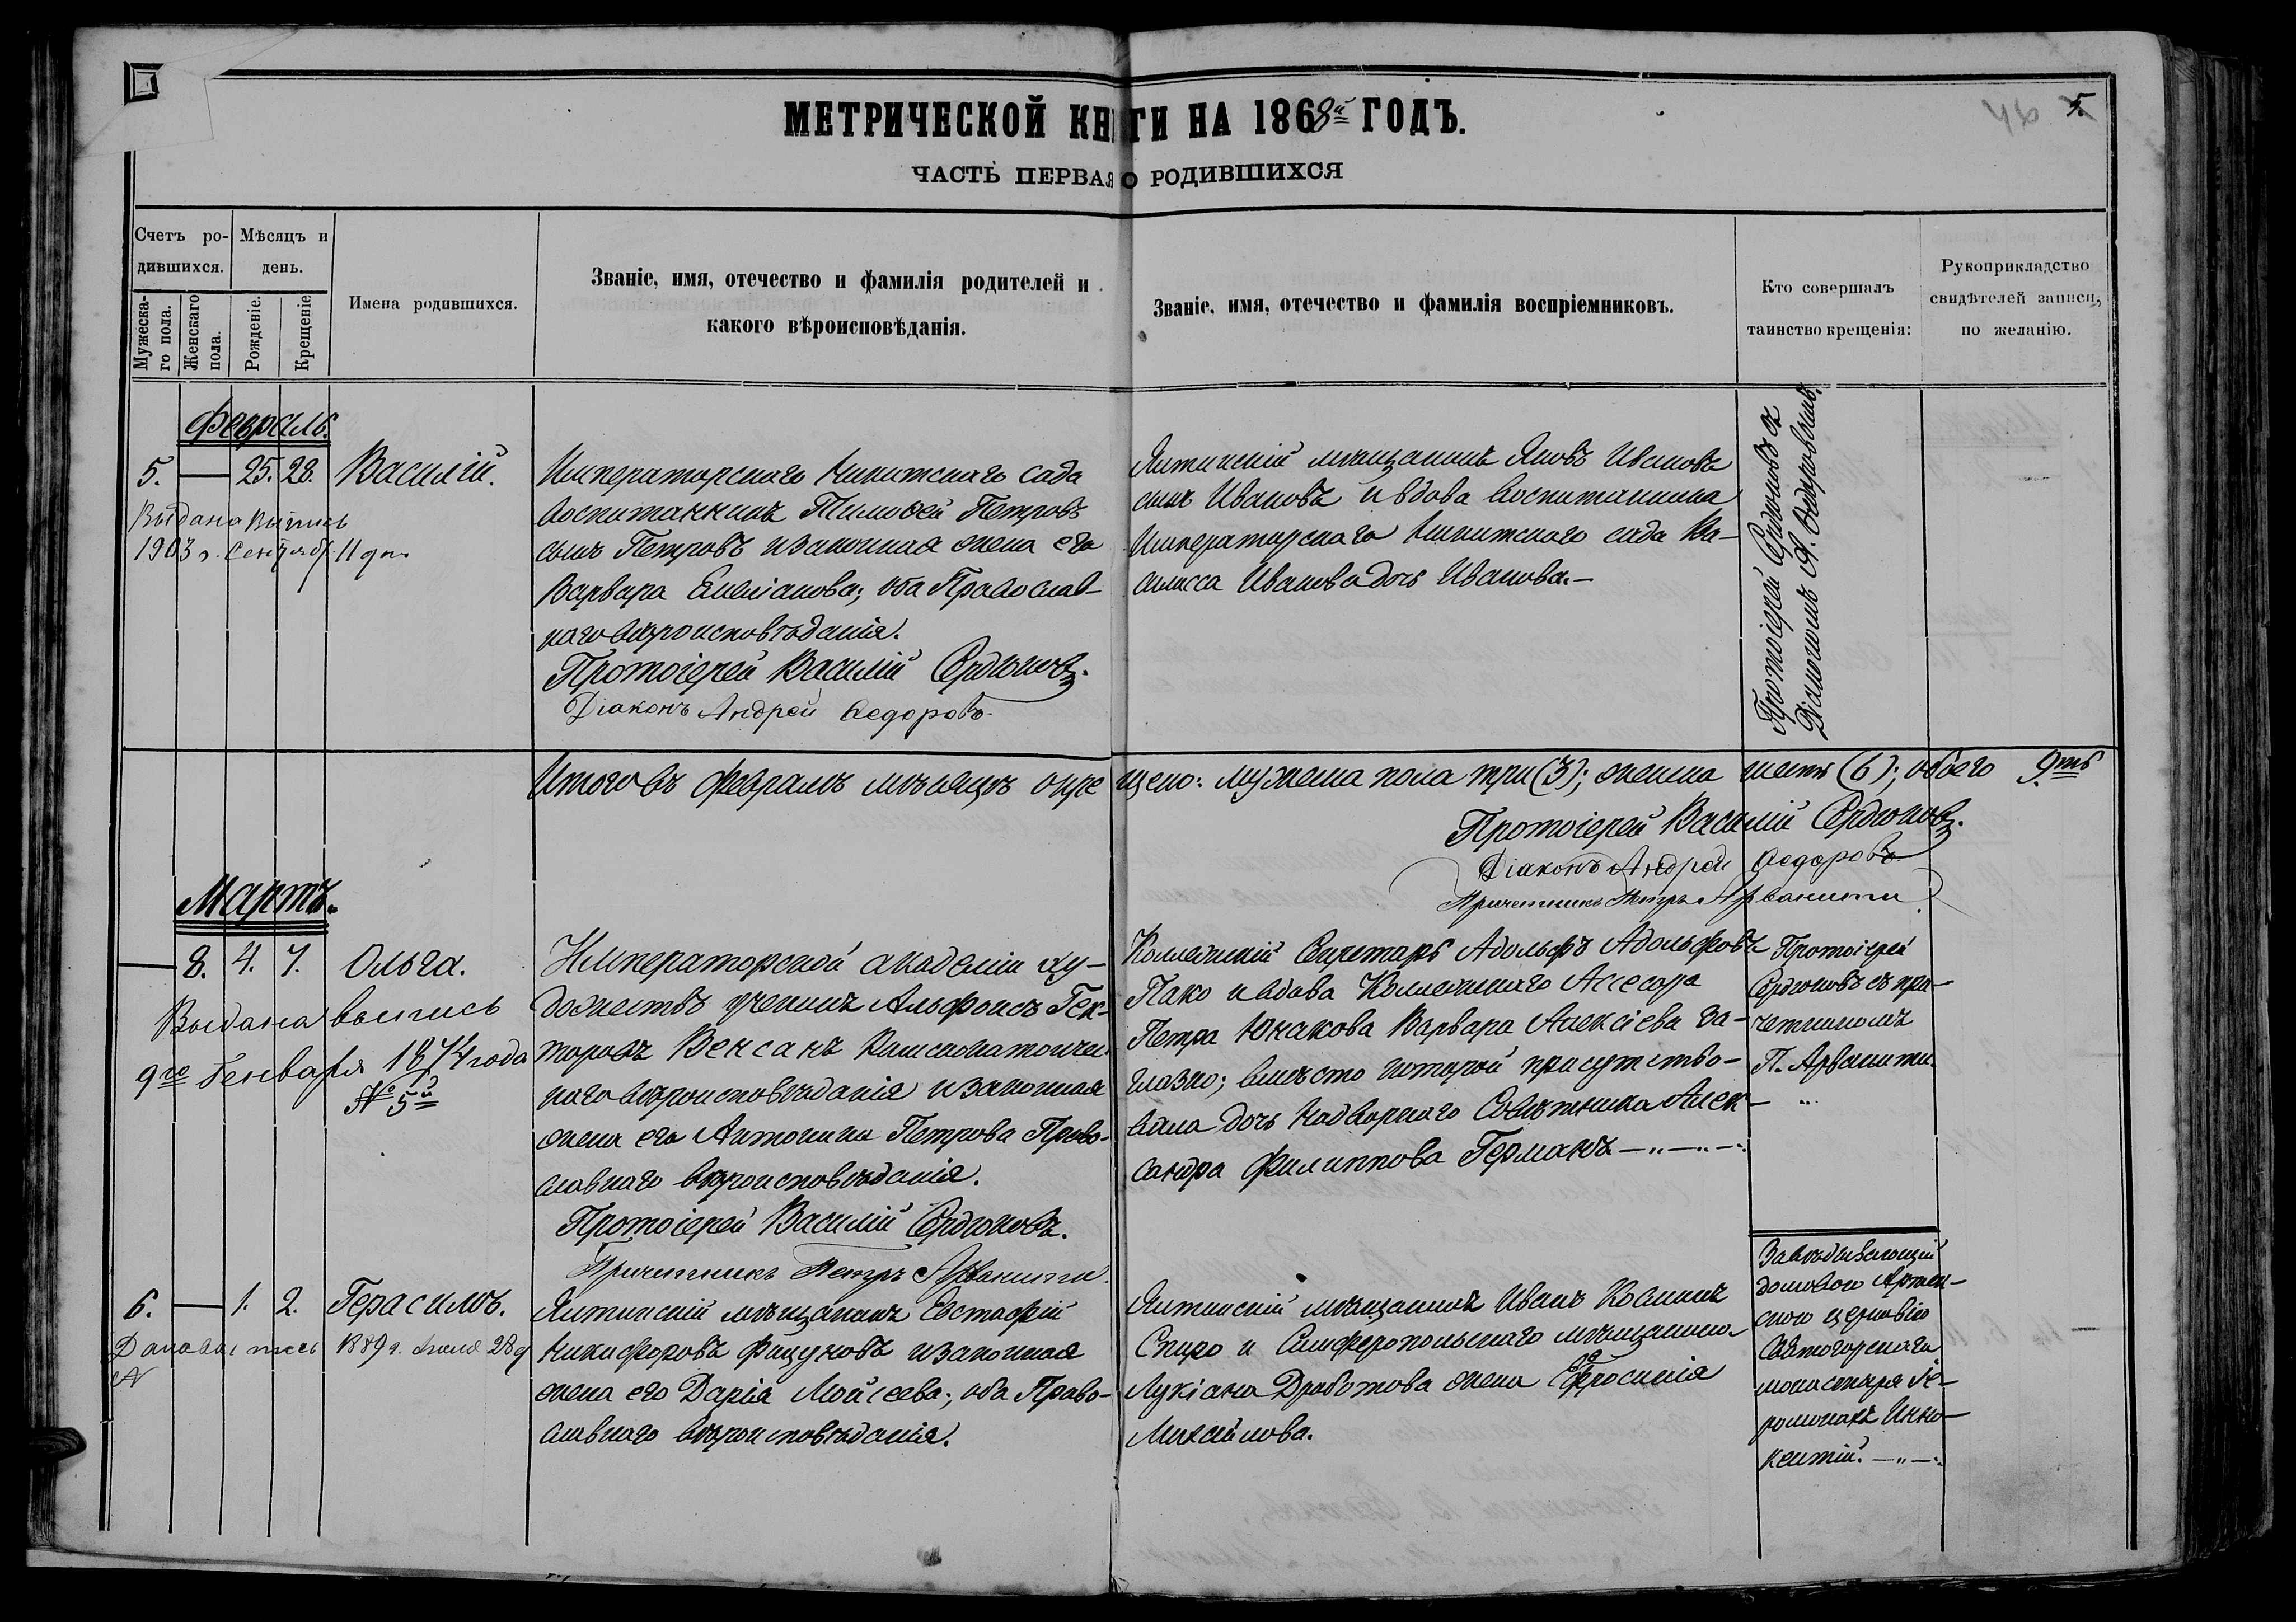 МЕТРИЧЕСКОЙ КНИГИ НА 1868й ГОДЪ.
5.
ЧАСТЬ ПЕРВАЯ О РОДИВШИХСЯ
Счетъ ро-
дившихся.
Мѣсяцъ и
день.
Мужеска-
го пола.
Женскаго
пола.
Рожденіе.
Крещеніе
Имена родившихся.
Званіе, имя, отечество и фамилія родителей и
какого вѣроисповѣданія.
Званіе, имя, отечество и фамилія воспріемниковъ.
Кто совершалъ
таинство крещенія:
Рукоприкладство
свидѣтелей записи,
по желанію.
Февраль.
5. — 25. 28. Василій.
Выдана выпись
1903 г. Сентября 11 дня
Императорскаго Никитскаго сада
воспитанникъ Тимоѳей Петровъ
сынъ Петровъ и законная жена его
Варвара Емеліанова; оба Православ-
наго вѣроисповѣданія.
Протоіерей Василій Сердюковъ.
Діаконъ Андрей Ѳедоровъ.
Ялтинскій мѣщанинъ Яковъ Ивановъ
сынъ Ивановъ и вдова воспитанника
Императорскаго Никитскаго сада Ва-
силисса Иванова дочь Иванова.—
Протоіерей Сердюковъ съ
Діакономъ А. Ѳедоровымъ.
Итого въ Февралѣ мѣсяцѣ окрещено: мужеска пола три (3); женска шесть (6); обоего 9ть
Протоіерей Василій Сердюковъ.
Діаконъ Андрей Ѳедоровъ
Причетникъ Петръ Арванити
Мартъ.
— 8. 4. 7. Ольга.
Выдана выпись
9го Генваря 1874 года
№ 5й
Императорской академіи ху-
дожествъ ученикъ Альфонсъ Гек-
торовъ Венсанъ Римскокатоличес-
каго вѣроисповѣданія и законная
жена его Антонина Петрова Право-
славнаго вѣроисповѣданія.
Протоіерей Василій Сердюковъ.
Причетникъ Петръ Арванити.
Коллежскій Секретарь Адольфъ Адольфовъ
Пако и вдова Коллежскаго Ассесора
Петра Юнакова Варвара Алексіева за-
глазно; вмѣсто которой присутство-
вала дочь Надворнаго Совѣтника Алек-
сандра Филиппова Германъ —„—„—
Протоіерей
Сердюковъ съ при-
четникомъ
П. Арванити.
6. — 1. 2. Герасимъ.
1889 г. 28
Ялтинскій мѣщанинъ Евстафій
Никифоровъ Фицуновъ и законная
жена его Дарія Мойсеева; оба Право-
славнаго вѣроисповѣданія.
Ялтинскій мѣщанинъ Иванъ Косминъ
Спиро и Симферопольскаго мѣщанина
Лукіана Дработова жена Ефросинія
Михайлова.
Завѣдывающій
домовою Артек-
скою церковію
Святогорскаго
монастыря Іе-
ромонахъ Инно-
кентій. —„—